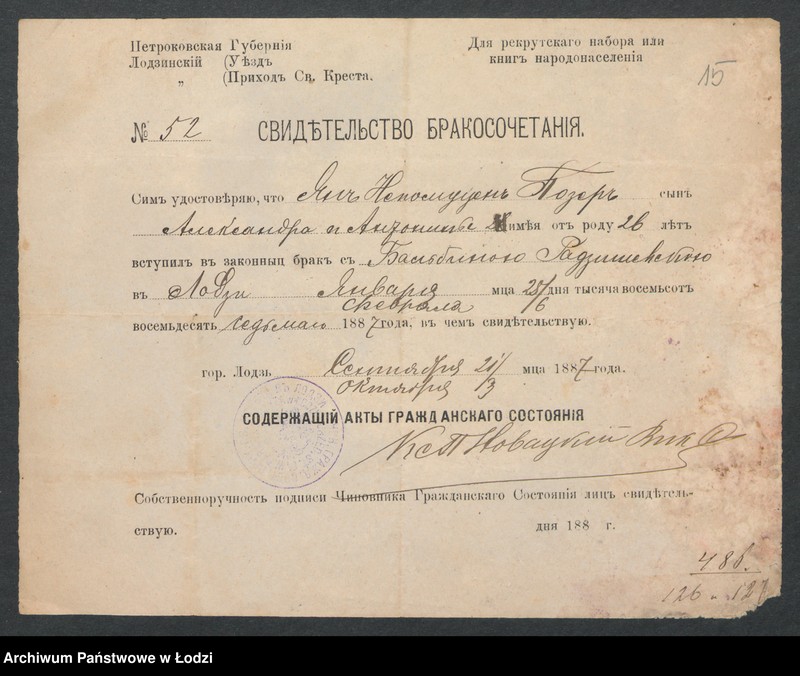 Петроковская Губернія
Лодзинскій (Уѣздъ
„ (Приходъ Св. Креста.
Для рекрутскаго набора или
книгъ народонаселенія
15
№ 52 СВИДѢТЕЛЬСТВО БРАКОСОЧЕТАНІЯ.
Симъ удостовѣряю, что Янъ Непомуценъ Позеръ сынъ
Александра и Антонины имѣя отъ роду 26 лѣтъ
вступилъ въ законный бракъ съ Бальбиною Радзишевскою
въ Лодзи Января мца 25/ дня тысяча восемьсотъ
Февраля /6
восемьдесять седьмаго 1887 года, въ чемъ свидѣтельствую.
гор. Лодзь Сентября 21/ мца 1887 года.
Октября /3
СОДЕРЖАЩІЙ АКТЫ ГРАЖДАНСКАГО СОСТОЯНІЯ
Новацкій
Собственноручность подписи Чиновника Гражданскаго Состоянія лицъ свидѣтель-
ствую.
дня 188 г.
486.
126 - 127
Archiwum Państwowe w Łodzi